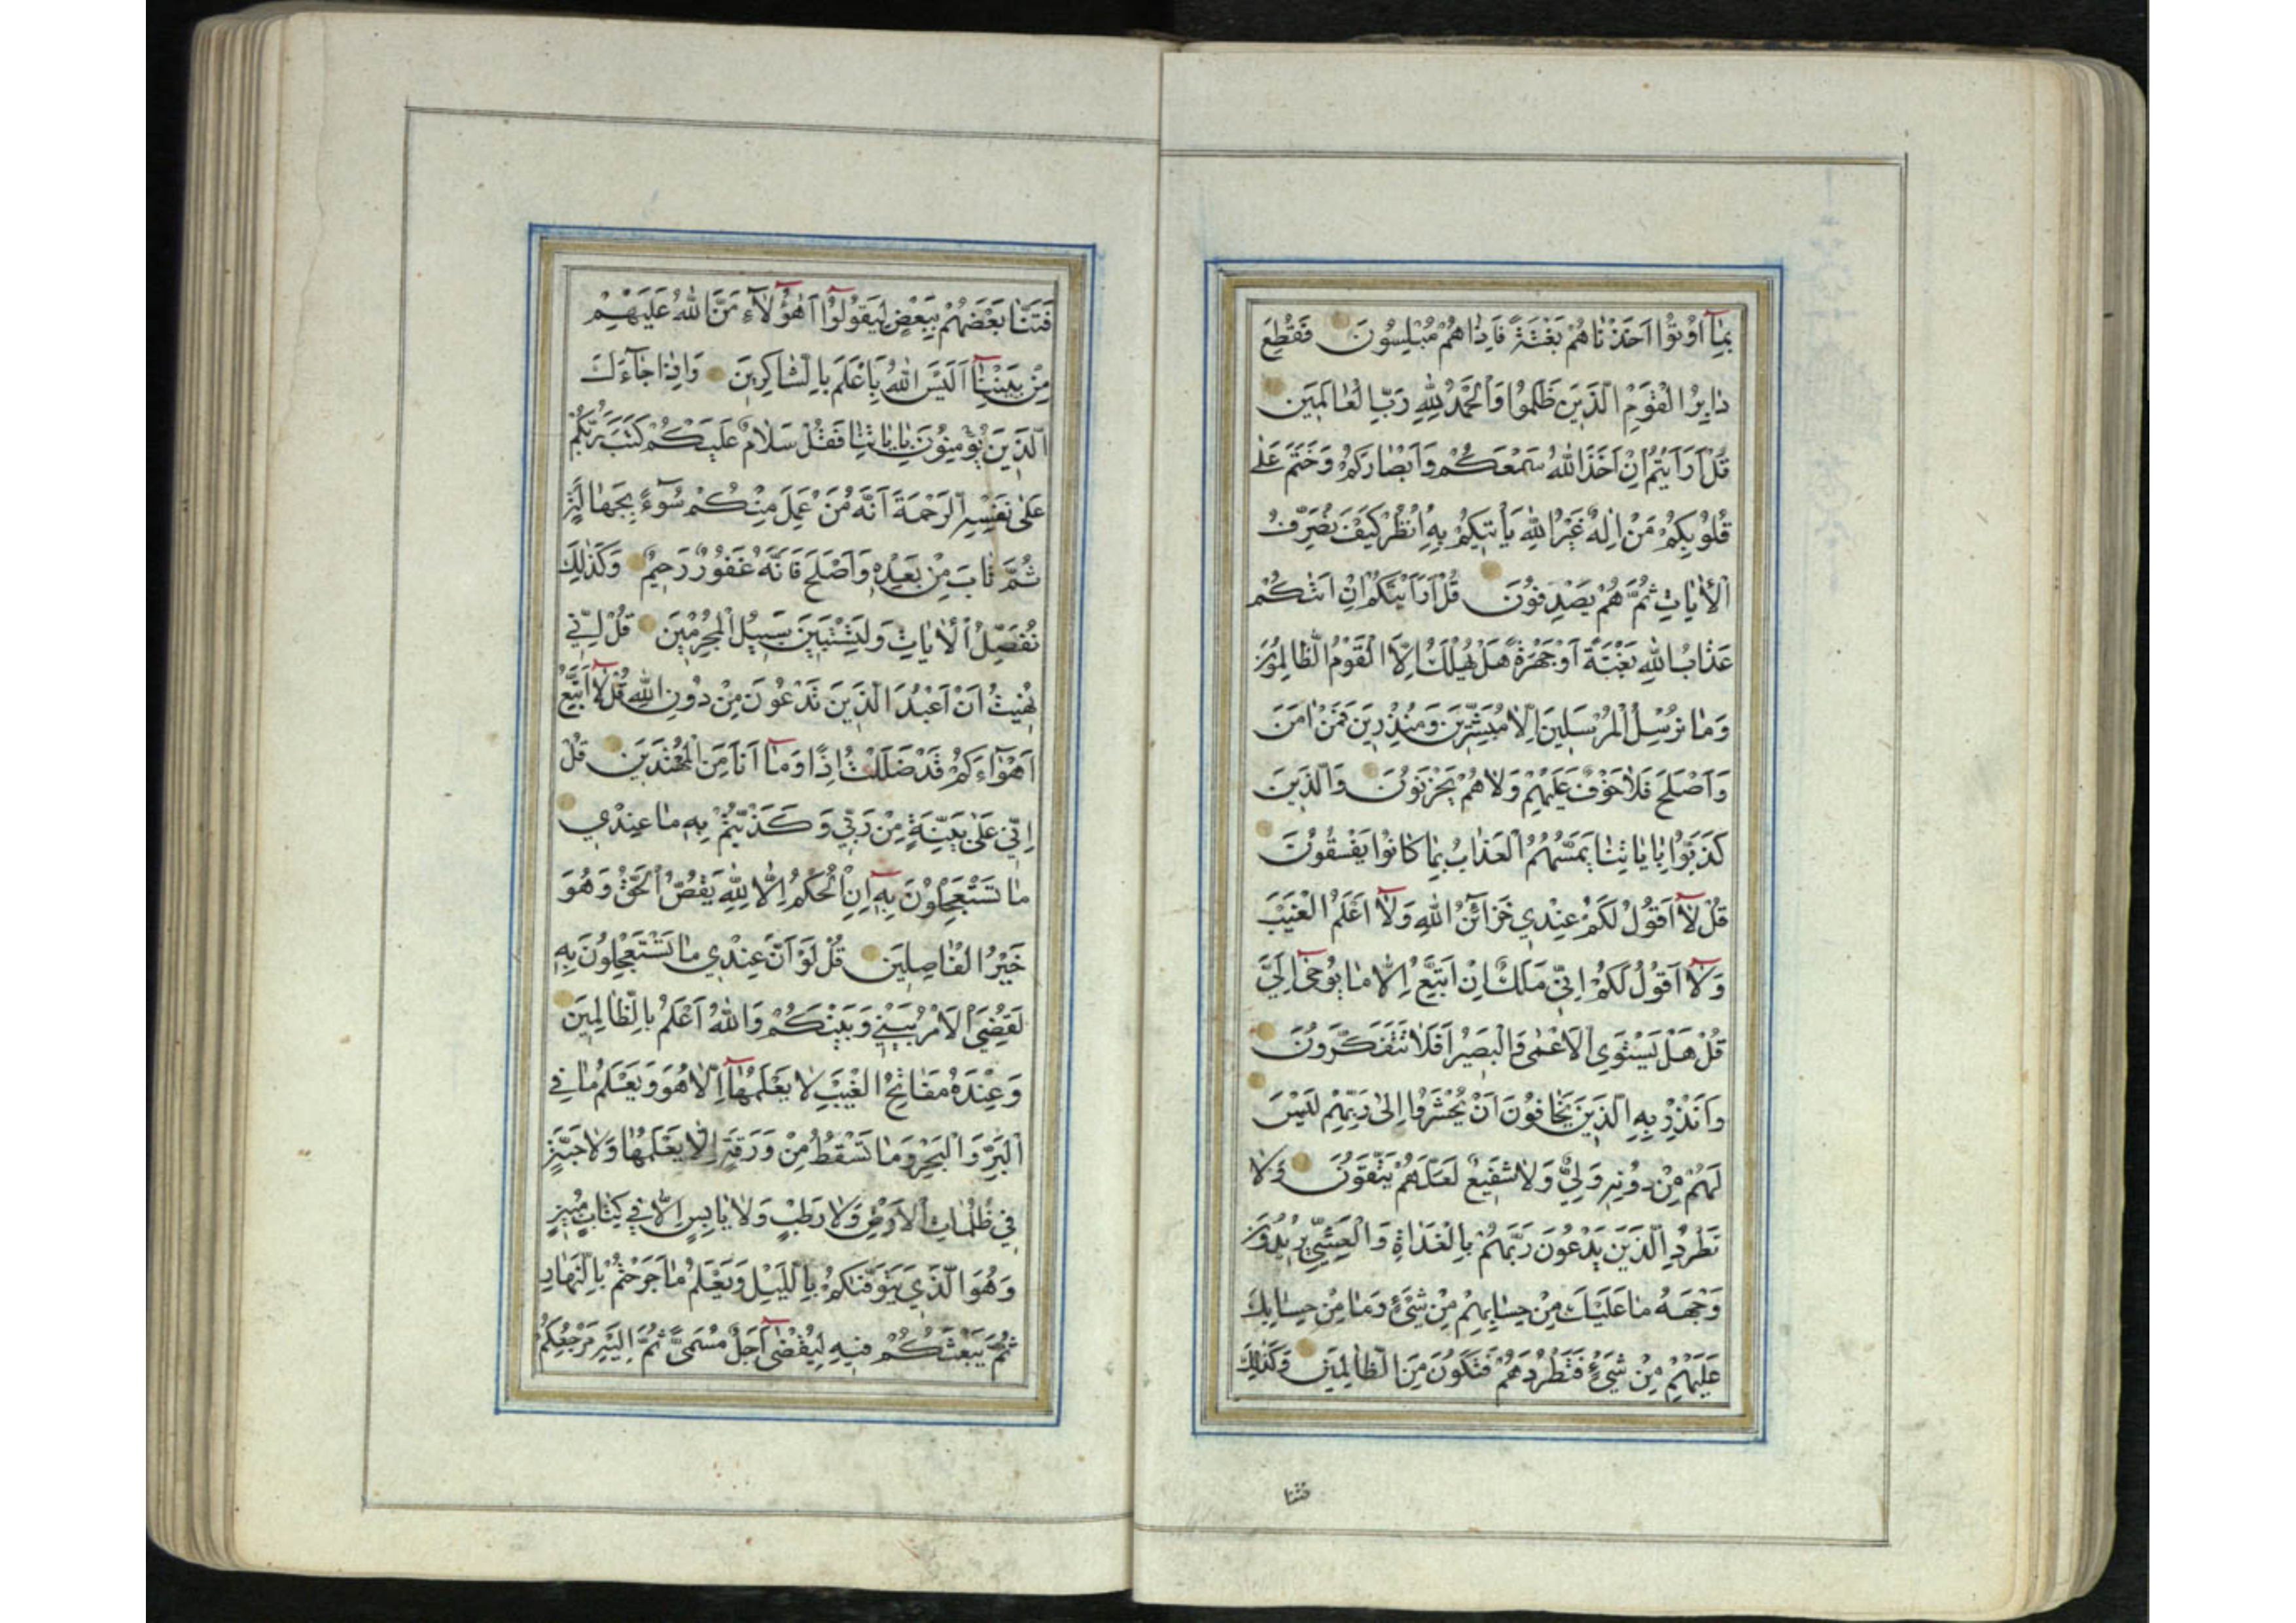 بِمَا اُوتُوا اَخَذْنَاهُمْ بَغْتَةً فَاِذَا هُمْ مُبْلِسُونَ فَقُطِعَ
دَابِرُ الْقَوْمِ الَّذِينَ ظَلَمُوا وَالْحَمْدُ لِلّٰهِ رَبِّ الْعَالَمِينَ
قُلْ اَرَاَيْتُمْ اِنْ اَخَذَ اللهُ سَمْعَكُمْ وَاَبْصَارَكُمْ وَخَتَمَ عَلٰى
قُلُوبِكُمْ مَنْ اِلٰهٌ غَيْرُ اللهِ يَاْتِيكُمْ بِهِ اُنْظُرْ كَيْفَ نُصَرِّفُ
الْاٰيَاتِ ثُمَّ هُمْ يَصْدِفُونَ قُلْ اَرَاَيْتَكُمْ اِنْ اَتٰيكُمْ
عَذَابُ اللهِ بَغْتَةً اَوْ جَهْرَةً هَلْ يُهْلَكُ اِلَّا الْقَوْمُ الظَّالِمُونَ
وَمَا نُرْسِلُ الْمُرْسَلِينَ اِلَّا مُبَشِّرِينَ وَمُنْذِرِينَ فَمَنْ اٰمَنَ
وَاَصْلَحَ فَلَا خَوْفٌ عَلَيْهِمْ وَلَا هُمْ يَحْزَنُونَ وَالَّذِينَ
كَذَّبُوا بِاٰيَاتِنَا يَمَسُّهُمُ الْعَذَابُ بِمَا كَانُوا يَفْسُقُونَ
قُلْ لَا اَقُولُ لَكُمْ عِنْدِي خَزَآئِنُ اللهِ وَلَا اَعْلَمُ الْغَيْبَ
وَلَا اَقُولُ لَكُمْ اِنِّي مَلَكٌ اِنْ اَتَّبِعُ اِلَّا مَا يُوحٰى اِلَيَّ
قُلْ هَلْ يَسْتَوِي الْاَعْمٰى وَالْبَصِيرُ اَفَلَا تَتَفَكَّرُونَ
وَاَنْذِرْ بِهِ الَّذِينَ يَخَافُونَ اَنْ يُحْشَرُوا اِلٰى رَبِّهِمْ لَيْسَ
لَهُمْ مِنْ دُونِهِ وَلِيٌّ وَلَا شَفِيعٌ لَعَلَّهُمْ يَتَّقُونَ وَلَا
تَطْرُدِ الَّذِينَ يَدْعُونَ رَبَّهُمْ بِالْغَدَاةِ وَالْعَشِيِّ يُرِيدُونَ
وَجْهَهُ مَا عَلَيْكَ مِنْ حِسَابِهِمْ مِنْ شَيْءٍ وَمَا مِنْ حِسَابِكَ
عَلَيْهِمْ مِنْ شَيْءٍ فَتَطْرُدَهُمْ فَتَكُونَ مِنَ الظَّالِمِينَ وَكَذٰلِكَ
فتنا
فَتَنَّا بَعْضَهُمْ بِبَعْضٍ لِيَقُولُوا اَهٰؤُلَاءِ مَنَّ اللهُ عَلَيْهِمْ
مِنْ بَيْنِنَا اَلَيْسَ اللهُ بِاَعْلَمَ بِالشَّاكِرِينَ وَاِذَا جَآءَكَ
الَّذِينَ يُؤْمِنُونَ بِاٰيَاتِنَا فَقُلْ سَلَامٌ عَلَيْكُمْ كَتَبَ رَبُّكُمْ
عَلٰى نَفْسِهِ الرَّحْمَةَ اَنَّهُ مَنْ عَمِلَ مِنْكُمْ سُوٓءًا بِجَهَالَةٍ
ثُمَّ تَابَ مِنْ بَعْدِهِ وَاَصْلَحَ فَاَنَّهُ غَفُورٌ رَحِيمٌ وَكَذٰلِكَ
نُفَصِّلُ الْاٰيَاتِ وَلِتَسْتَبِينَ سَبِيلُ الْمُجْرِمِينَ قُلْ اِنِّي
نُهِيتُ اَنْ اَعْبُدَ الَّذِينَ تَدْعُونَ مِنْ دُونِ اللهِ قُلْ لَا اَتَّبِعُ
اَهْوَآءَكُمْ قَدْ ضَلَلْتُ اِذًا وَمَا اَنَا مِنَ الْمُهْتَدِينَ قُلْ
اِنِّي عَلٰى بَيِّنَةٍ مِنْ رَبِّي وَكَذَّبْتُمْ بِهِ مَا عِنْدِي
مَا تَسْتَعْجِلُونَ بِهِ اِنِ الْحُكْمُ اِلَّا لِلّٰهِ يَقُصُّ الْحَقَّ وَهُوَ
خَيْرُ الْفَاصِلِينَ قُلْ لَوْ اَنَّ عِنْدِي مَا تَسْتَعْجِلُونَ بِهِ
لَقُضِيَ الْاَمْرُ بَيْنِي وَبَيْنَكُمْ وَاللهُ اَعْلَمُ بِالظَّالِمِينَ
وَعِنْدَهُ مَفَاتِحُ الْغَيْبِ لَا يَعْلَمُهَا اِلَّا هُوَ وَيَعْلَمُ مَا فِي
الْبَرِّ وَالْبَحْرِ وَمَا تَسْقُطُ مِنْ وَرَقَةٍ اِلَّا يَعْلَمُهَا وَلَا حَبَّةٍ
فِي ظُلُمَاتِ الْاَرْضِ وَلَا رَطْبٍ وَلَا يَابِسٍ اِلَّا فِي كِتَابٍ مُبِينٍ
وَهُوَ الَّذِي يَتَوَفّٰيكُمْ بِاللَّيْلِ وَيَعْلَمُ مَا جَرَحْتُمْ بِالنَّهَارِ
ثُمَّ يَبْعَثُكُمْ فِيهِ لِيُقْضٰى اَجَلٌ مُسَمًّى ثُمَّ اِلَيْهِ مَرْجِعُكُمْ